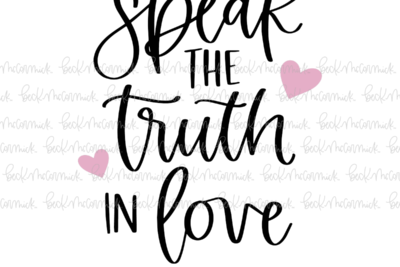 speak
THE
truth
IN love